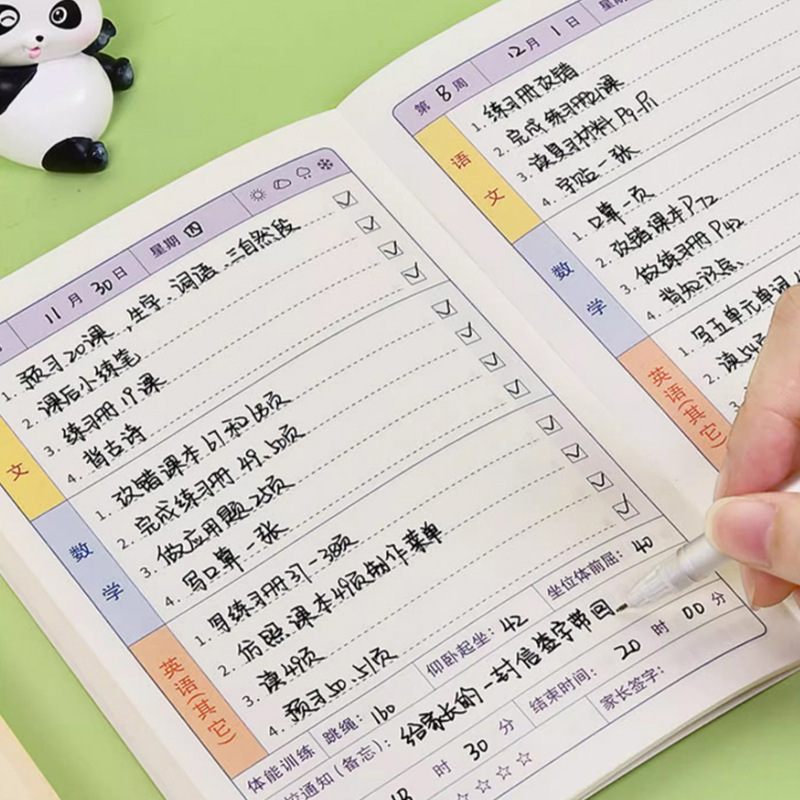 11月30日 星期四
文
1. 预习20课，生字、词语、三自然段
2. 课后小练笔
3. 练习册19课
4. 背古诗
数学
1. 改错课本67和68页
2. 完成练习册49.50页
3. 做应用题25页
4. 写口算一张
英语(其它)
1. 写练习册37-38页
2. 仿照课本49页制作菜单
3. 读49页
4. 预习50.51页
体能训练 跳绳：160 仰卧起坐：42 坐位体前屈：40
校通知(备忘)：给家长的一封信签字带回
时30分 结束时间：20时00分
家长签字：
第8周 12月1日 星期
语文
1. 练习册改错
2. 完成练习册21课
3. 读复习材料P9-P11
4. 字帖一张
数学
1. 口算一页
2. 改错课本P72
3. 做练习册P42
4. 背知识点
英语(其它)
1. 写五单元单词
2. 读54
3.